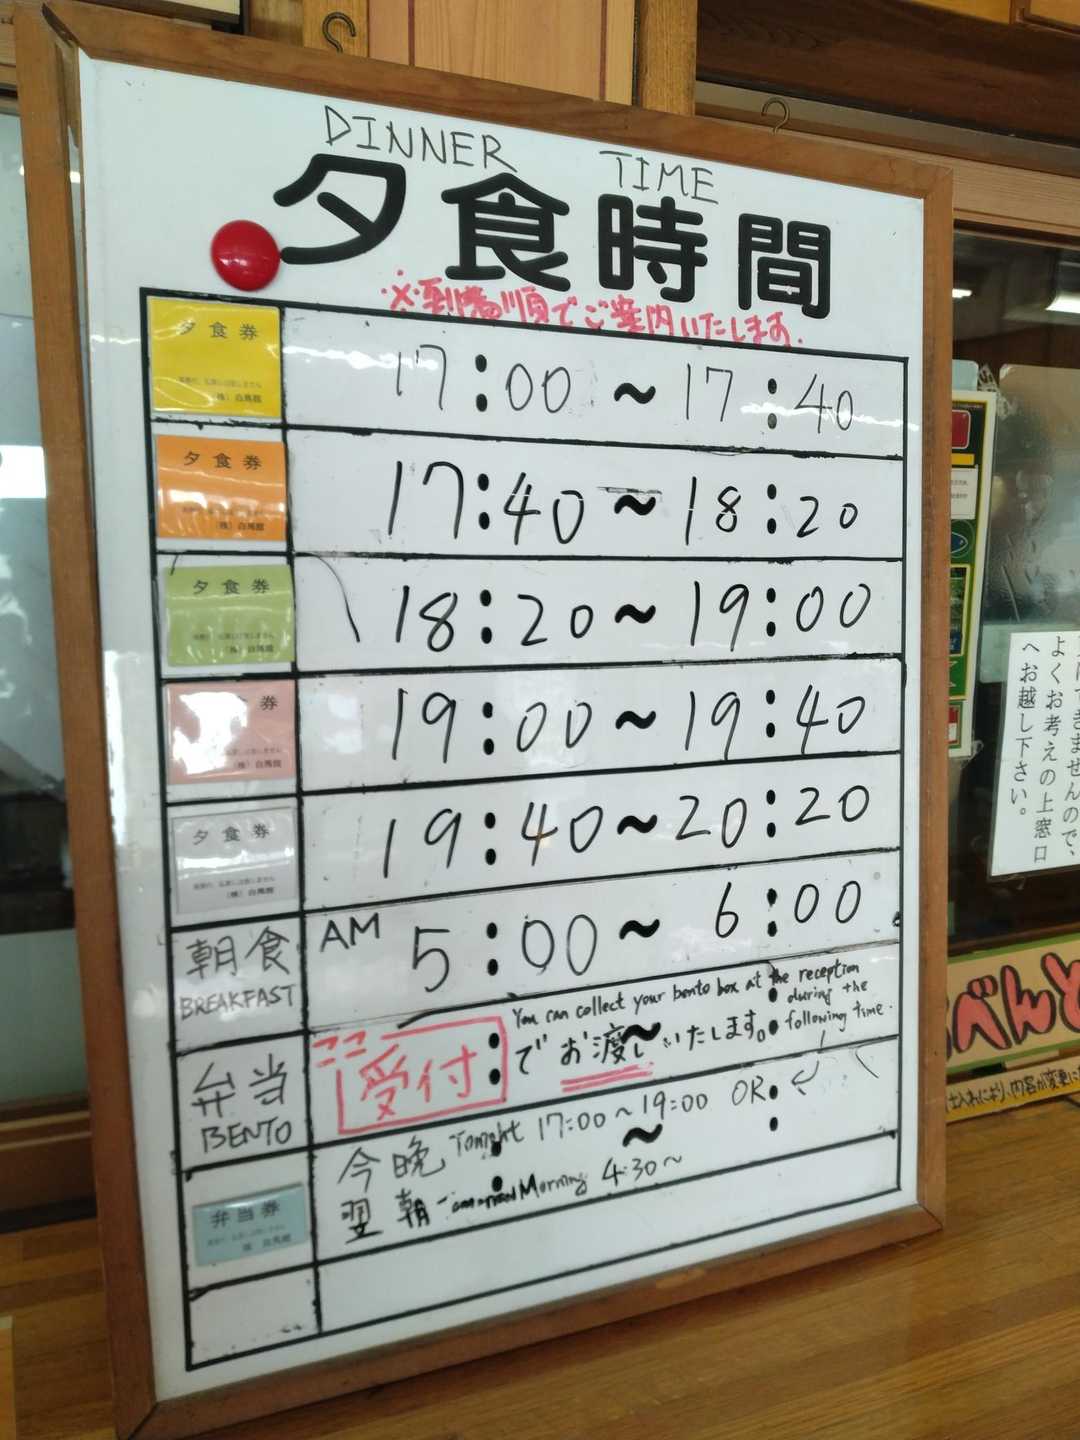 DINNER TIME
夕食時間
※到着順でご案内いたします.
夕食券
(株) 白馬館
17:00 ~ 17:40
夕食券
(株) 白馬館
17:40 ~ 18:20
夕食券
(株) 白馬館
18:20 ~ 19:00
券
(株) 白馬館
19:00 ~ 19:40
夕食券
(株) 白馬館
19:40 ~ 20:20
朝食
BREAKFAST
AM 5:00 ~ 6:00
弁当
BENTO
You can collect your bento box at the reception
during the
following time.
ここ 受付 でお渡しいたします。
今晩 Tonight 17:00 ~ 19:00 OR
翌朝 Morning 4:30~
弁当券
白馬館
よくお考えの上窓口
へお越し下さい。
べんと